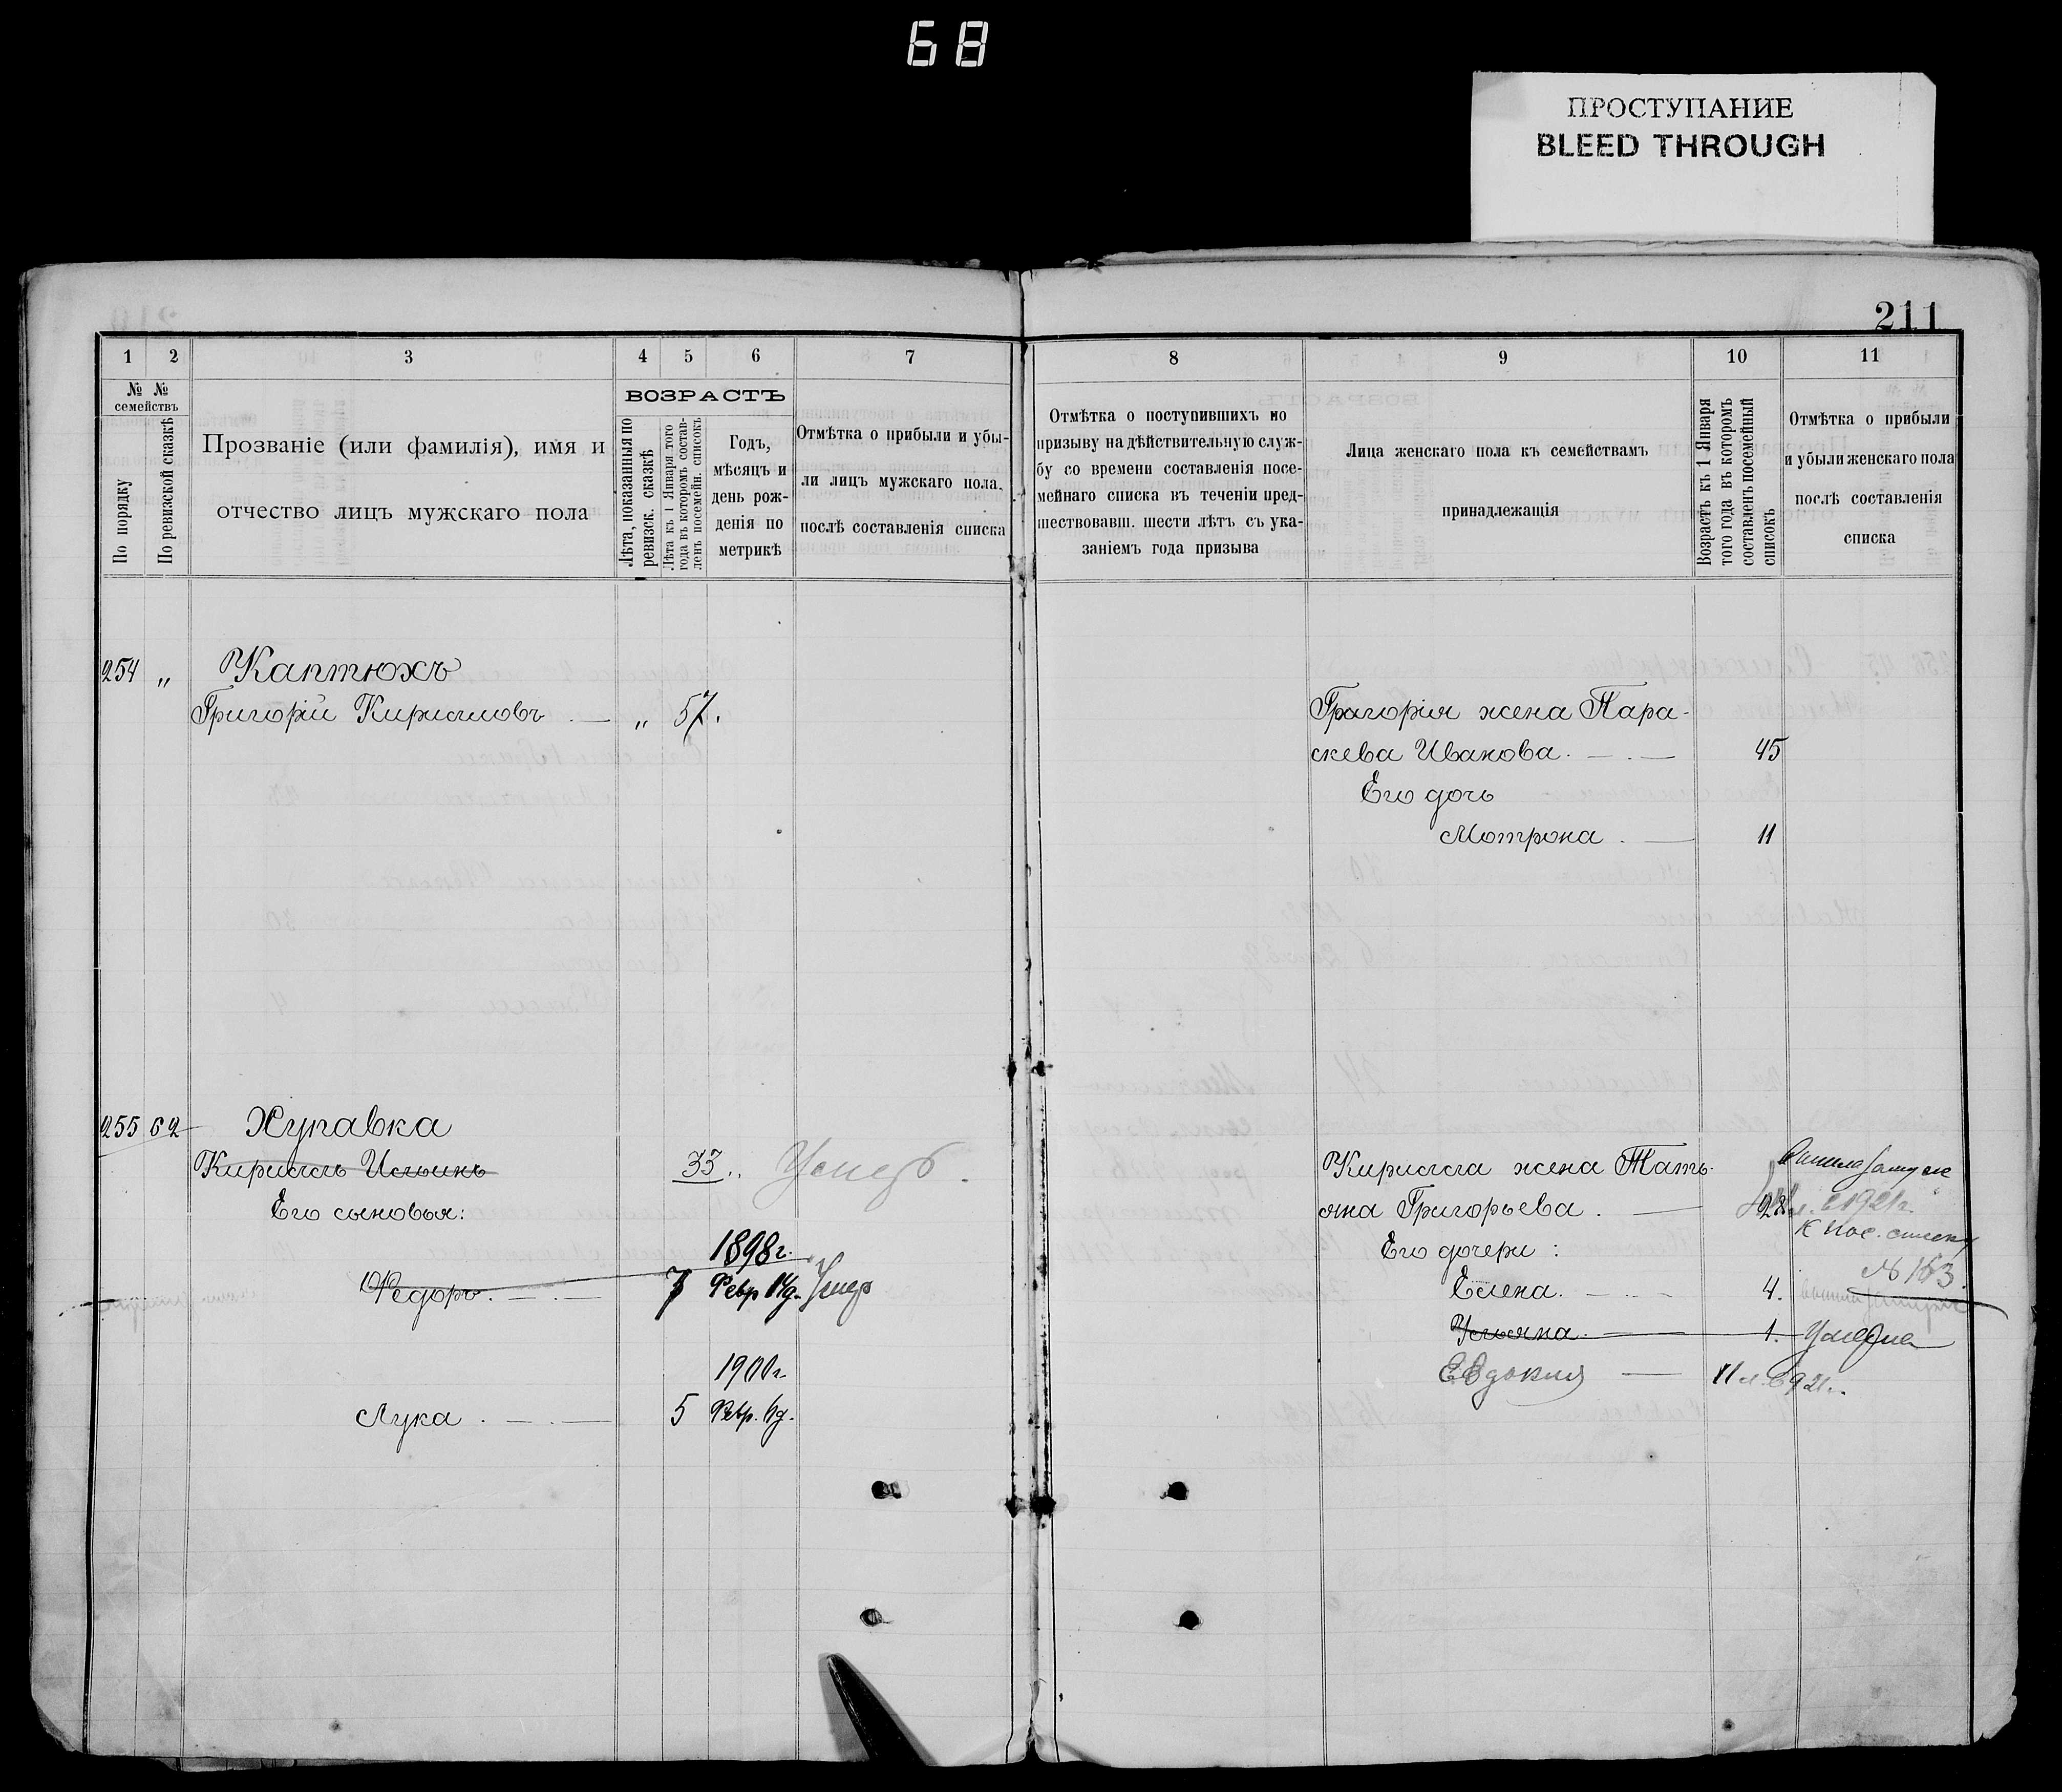 68
ПРОСТУПАНИЕ
BLEED THROUGH
211
1 2 3 4 5 6 7 8 9 10 11
№ № семействъ
По порядку
По ревизской сказкѣ
Прозваніе (или фамилія), имя и
отчество лицъ мужскаго пола
ВОЗРАСТЪ
Лѣта, показанныя по
ревизск. сказкѣ
Лѣта къ 1 Января того
года въ которомъ состав-
ленъ посемейн. списокъ
Годъ,
мѣсяцъ и
день рож-
денія по
метрикѣ
Отмѣтка о прибыли и убы-
ли лицъ мужскаго пола,
послѣ составленія списка
Отмѣтка о поступившихъ по
призыву на дѣйствительную служ-
бу со времени составленія посе-
мейнаго списка въ теченіи пред-
шествовавш. шести лѣтъ съ ука-
заніемъ года призыва
Лица женскаго пола къ семействамъ
принадлежащія
Возрастъ къ 1 Января
того года въ которомъ
составленъ посемейный
списокъ
Отмѣтка о прибыли
и убыли женскаго пола
послѣ составленія
списка
254 „ Каптюхъ
Григорій Кирилловъ „ 57.
Григорія жена Пара-
скева Иванова. 45
Его дочь
Мотрона. 11
255 62 Хупавка
Кириллъ Ильинъ 33 Умеръ.
Его сыновья:
1898 г.
Федоръ. 7 Февр 14д. Умер
1900 г.
Лука. 5 Февр. 6д.
Кирилла жена Тать-
яна Григорьева. 28
Вышла замуж
в 1921 г.
К пос. списку
№ 163.
Его дочери:
Елена. 4.
Ульяна. 1. Умерла
Евдокия 11 л. в 921 г.